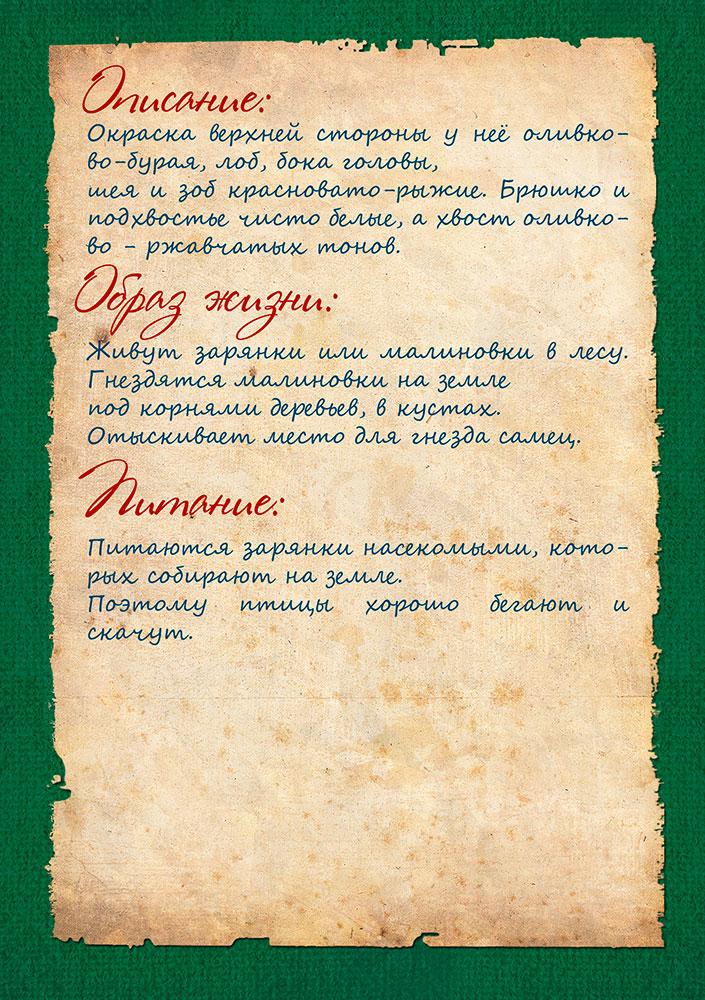 Описание:
Окраска верхней стороны у неё оливко-
во-бурая, лоб, бока головы,
шея и зоб красновато-рыжие. Брюшко и
подхвостье чисто белые, а хвост оливко-
во - ржавчатых тонов.
Образ жизни:
Живут зарянки или малиновки в лесу.
Гнездятся малиновки на земле
под корнями деревьев, в кустах.
Отыскивает место для гнезда самец.
Питание:
Питаются зарянки насекомыми, кото-
рых собирают на земле.
Поэтому птицы хорошо бегают и
скачут.